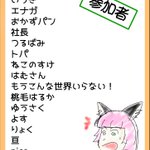 参加者
エナガ
おかずパン
社長
つるばみ
トパ
ねこのすけ
はたさん
もうこんな世界いらない！
桃毛はるか
ゆうさく
よす
りょく
亘